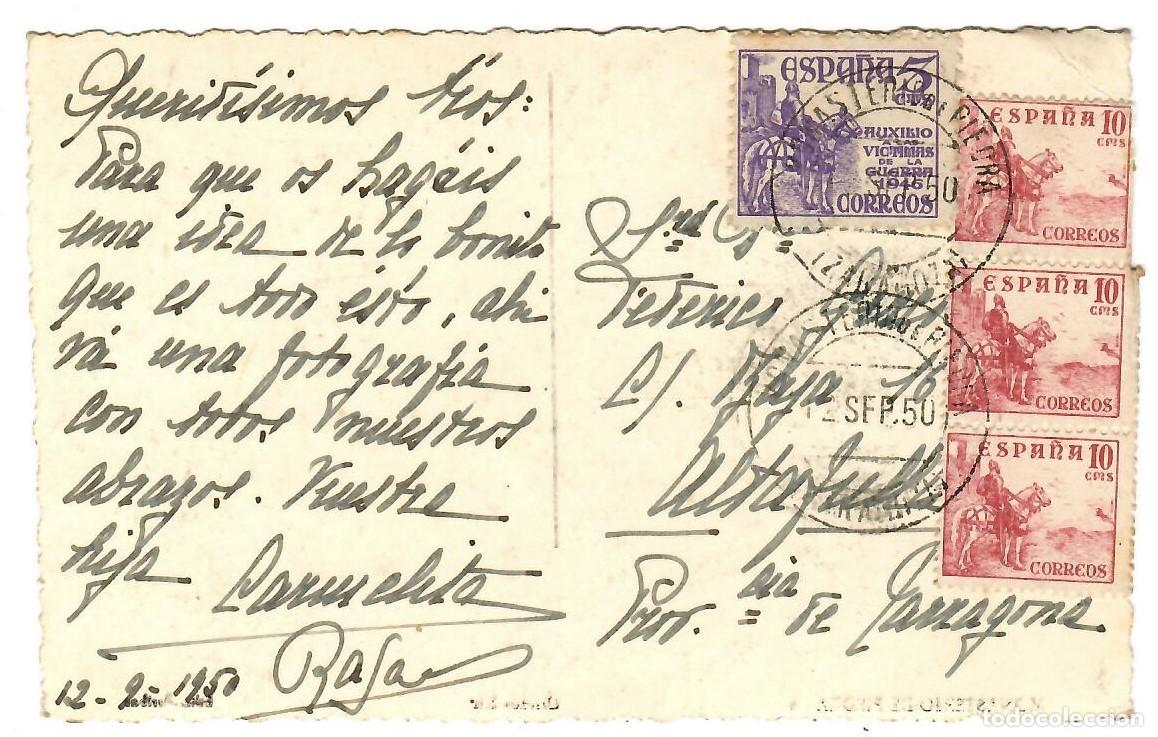 Queridísimos tíos:
Para que os hagáis
una idea de lo bonito
que es todo ésto, ahí
vá una fotografía
con todos nuestros
abrazos. Vuestra
hija
Carmelita
Rafael
12-9-1950
ESPAÑA 5
CTS
AUXILIO
A LAS
VICTIMAS
DE LA
GUERRA
1946
CORREOS
ESPAÑA 10
CMS
CORREOS
ESPAÑA 10
CMS
CORREOS
ESPAÑA 10
CMS
CORREOS
MONASTERIO DE PIEDRA
50
(ZARAGOZA)
12 SEP. 50
Federico
C/. 16
Altafulla
Prov.cia de Tarragona
MONASTERIO DE PIEDRA
todocoleccion